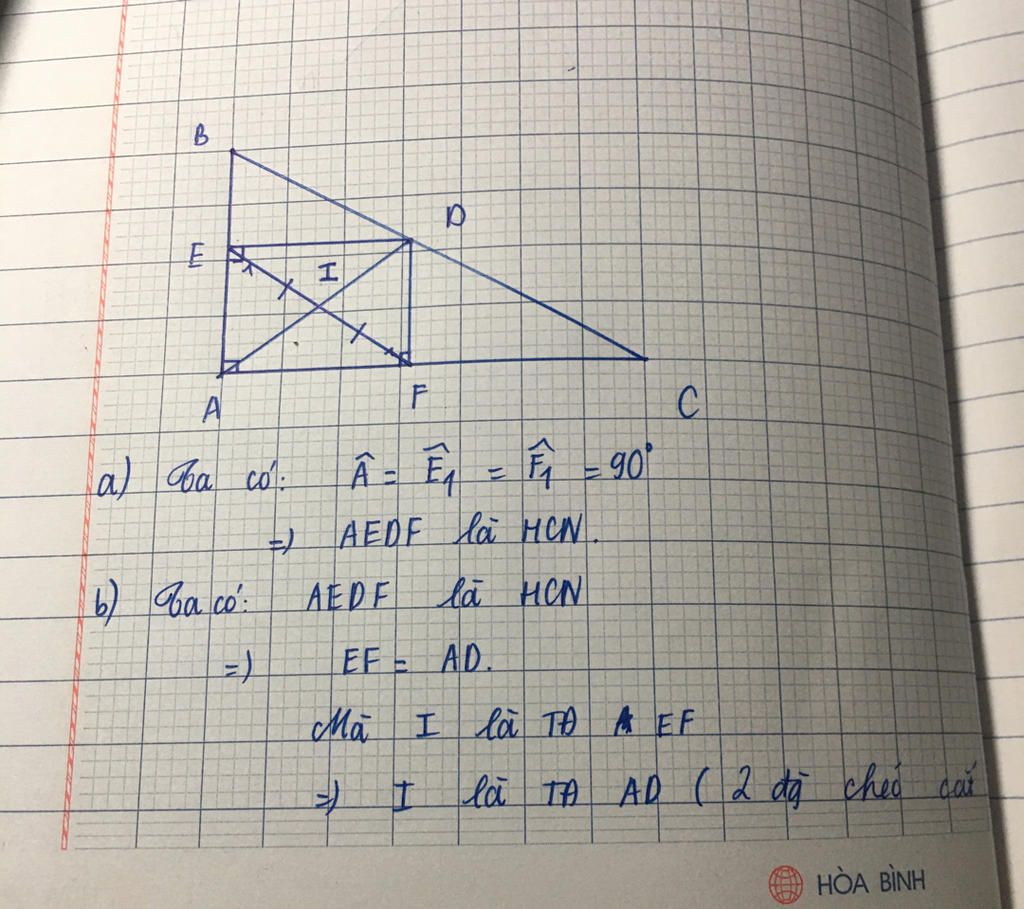 B
D
E
1
I
A
F
C
a) Ta có: Â = Ê₁ = F̂₁ = 90°
=) AEDF là HCN.
b) Ta có: AEDF là HCN
=) EF = AD.
Mà I là TĐ EF
=) I là TĐ AD ( 2 đg chéo cắt
HÒA BÌNH